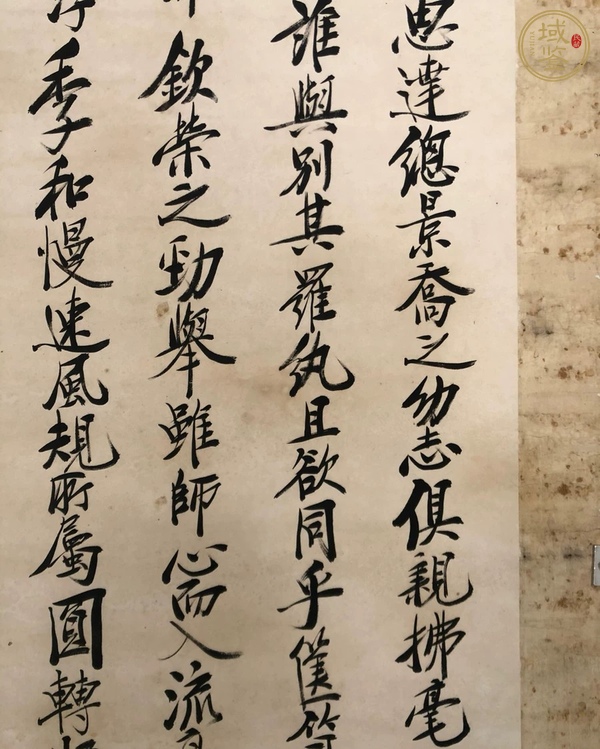 思達總景喬之幼志俱親拂毫
誰與別其羅紈且欲同乎僕
欽榮之勁舉雖師心而入流
季和慢速風規所屬圓轉
域鉴